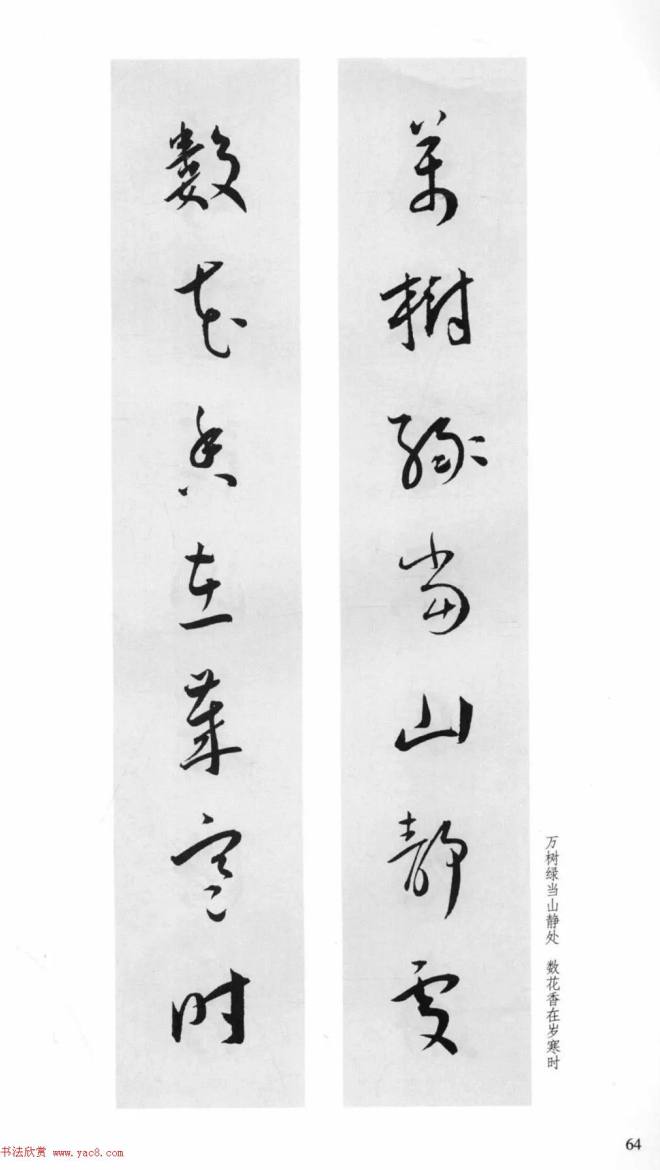 萬樹綠當山靜處
數花香在歲寒時
万树绿当山静处 数花香在岁寒时
64
书法欣赏 www.yac8.com